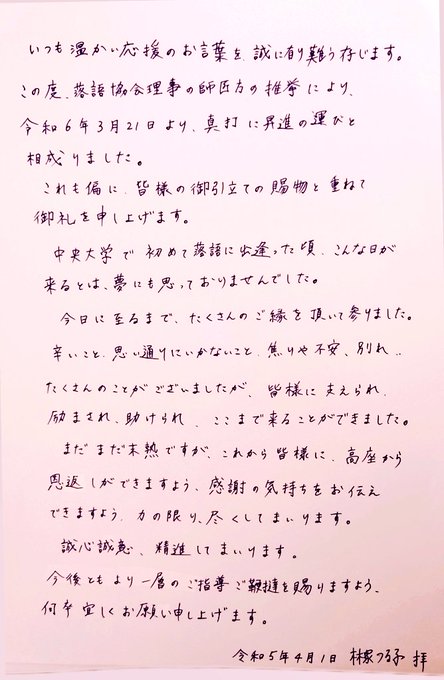 いつも温かい応援のお言葉を、誠に有り難う存じます。
この度、落語協会理事の師匠方の推挙により、
令和6年3月21日より、真打に昇進の運びと
相成りました。
これも偏に、皆様の御引立ての賜物と重ねて
御礼を申し上げます。
中央大学で初めて落語に出逢った頃、こんな日が
来るとは、夢にも思っておりませんでした。
今日に至るまで、たくさんのご縁を頂いて参りました。
辛いこと、思い通りにいかないこと、焦りや不安、別れ‥
たくさんのことがございましたが、皆様に支えられ、
励まされ、助けられ、ここまで来ることができました。
まだまだ未熟ですが、これから皆様に、高座から
恩返しができますよう、感謝の気持ちをお伝え
できますよう、力の限り、尽くしてまいります。
誠心誠意、精進してまいります。
今後ともより一層のご指導ご鞭撻を賜りますよう、
何卒宜しくお願い申し上げます。
令和5年4月1日 林家つる子 拝